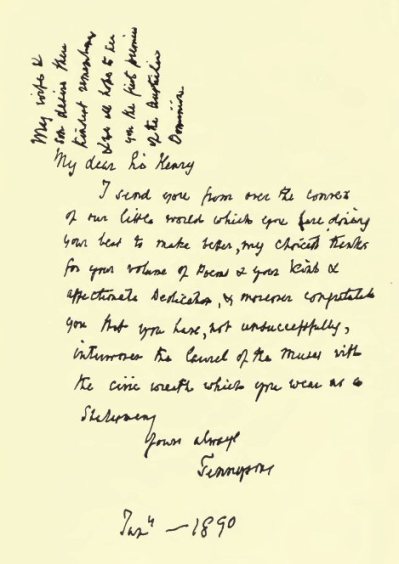 My wife &
son desire their
kindest remembrances
& we all hope to see
you the first premier
of the Australian
Dominion
My dear Sir Henry
I send you from over the convex
of our little world which you are doing
your best to make better, my choicest thanks
for your volume of Poems & your kind &
affectionate Dedication, & moreover congratulate
you that you have, not unsuccessfully,
interwoven the laurel of the Muses with
the civic wreath which you wear as a
Statesman
Yours always
Tennyson
Jan 1890